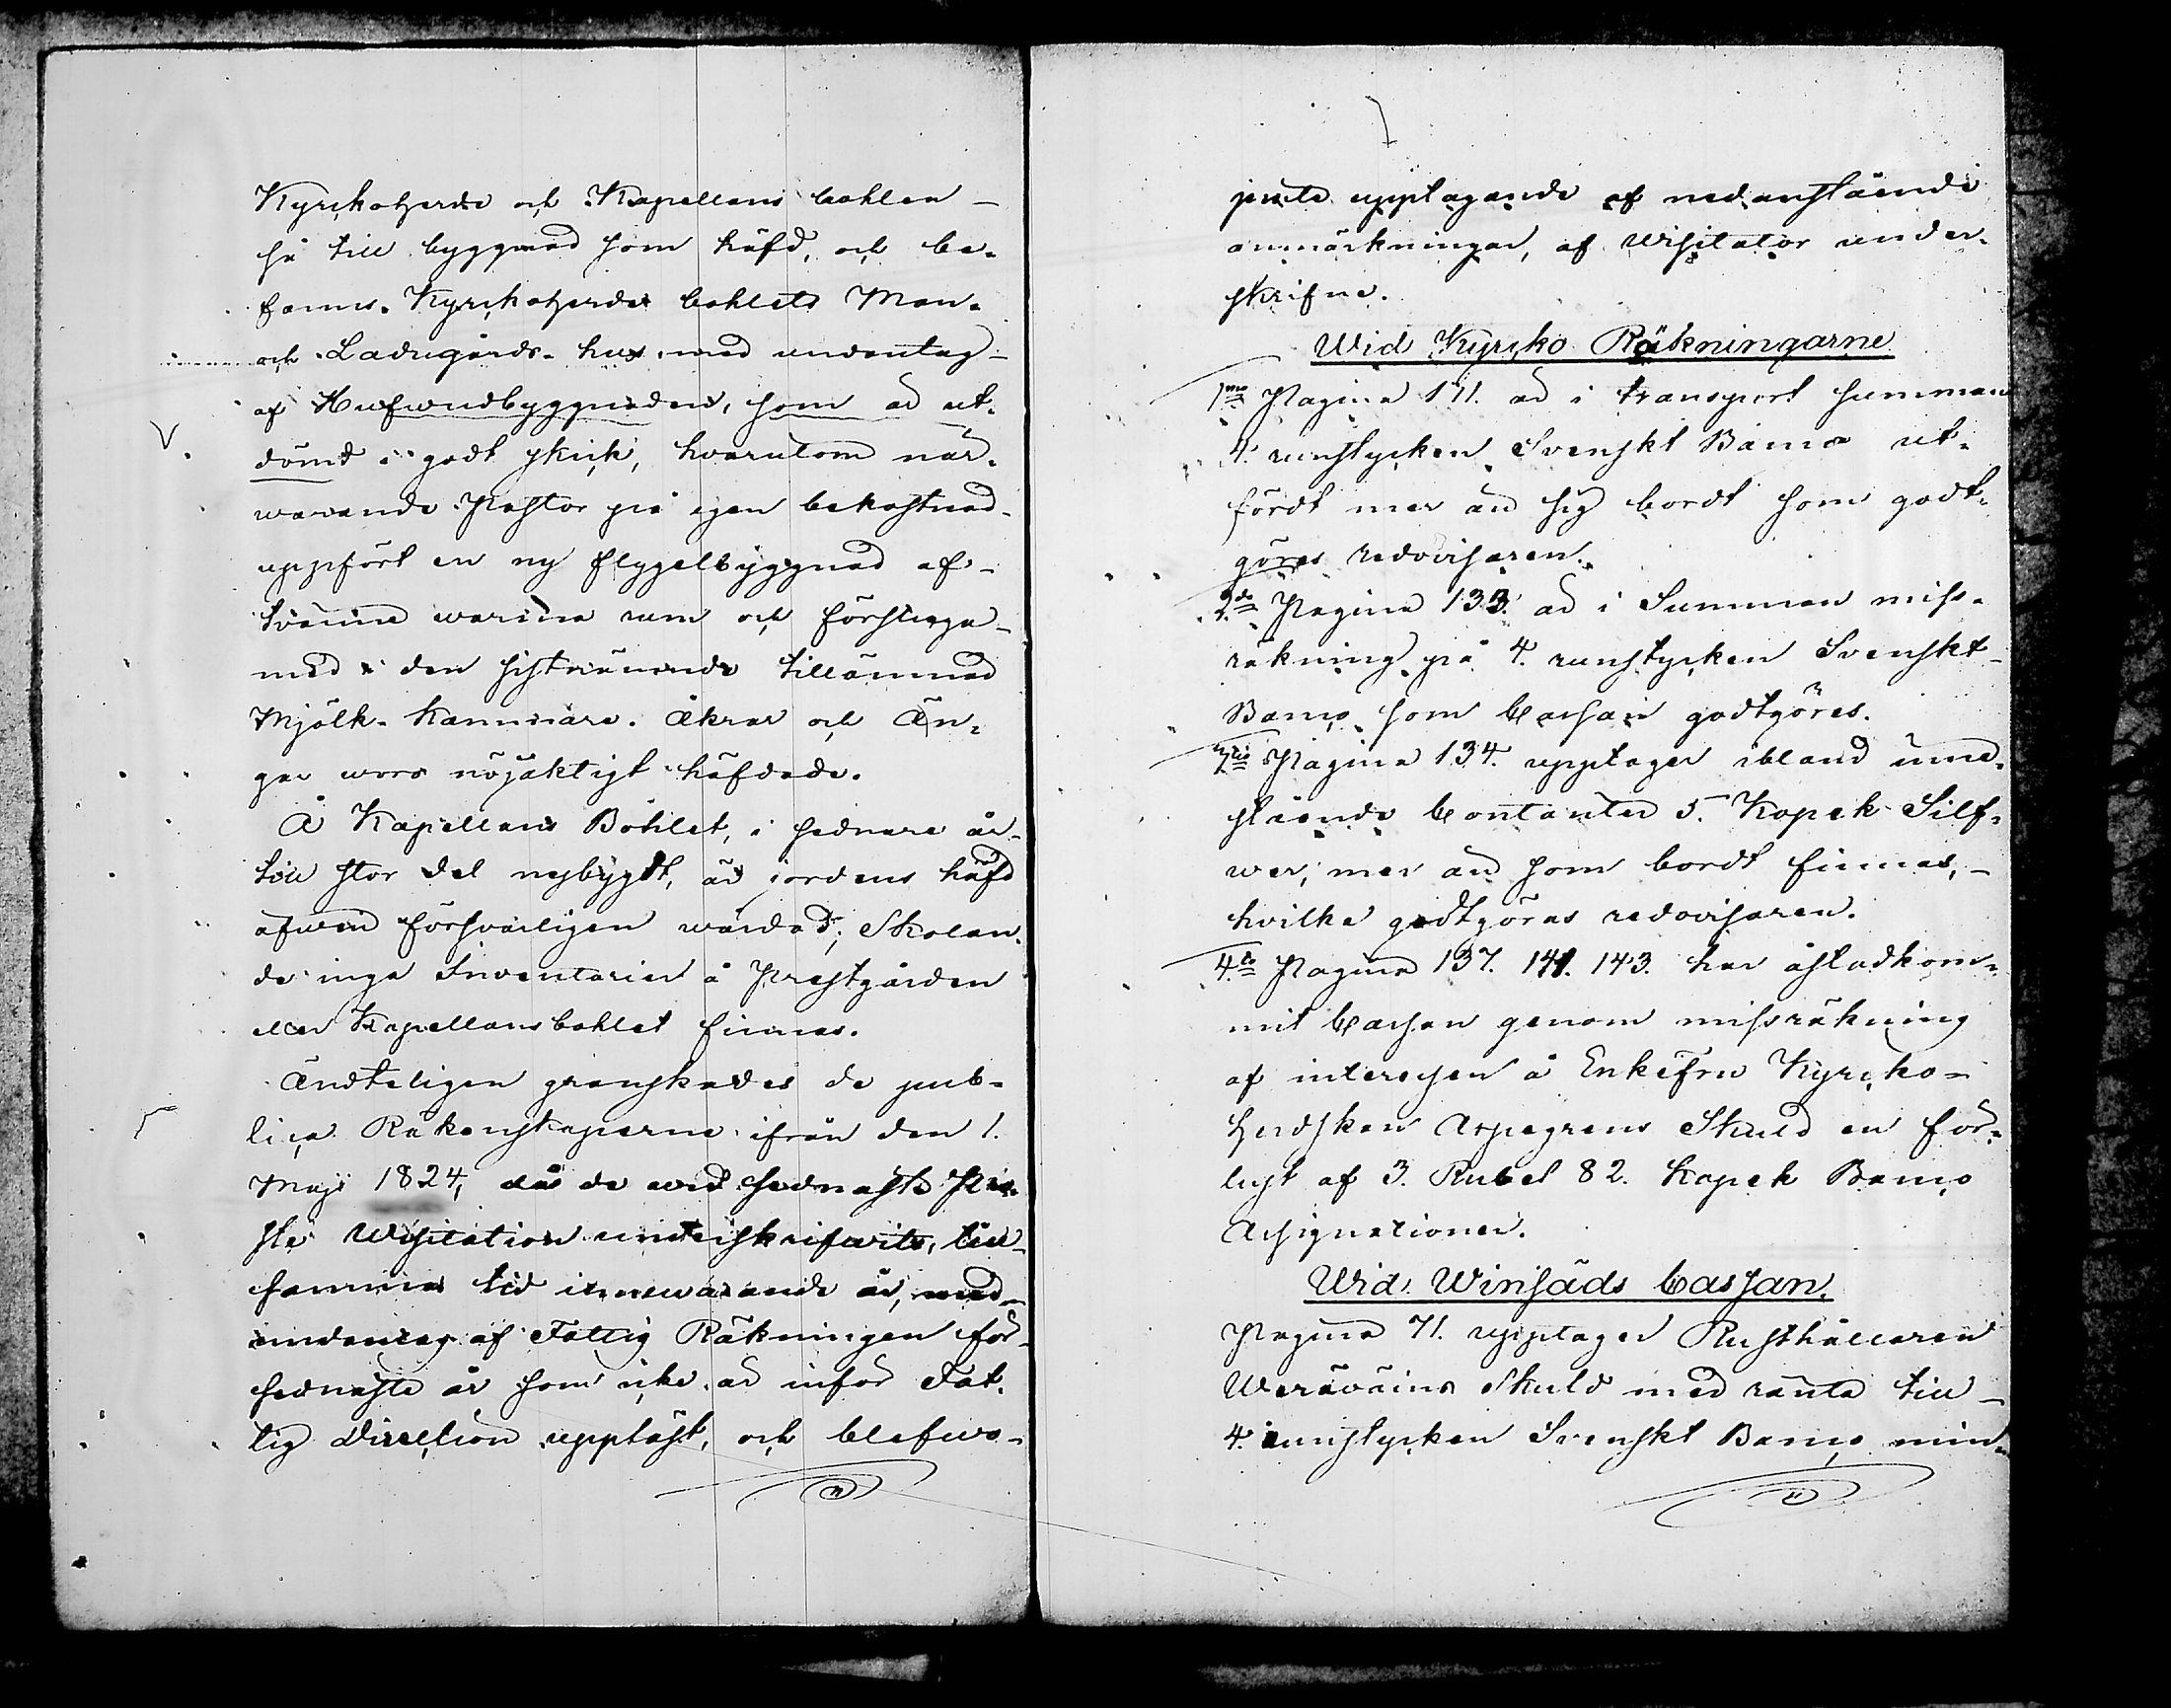 Kyrckoherde och Kapellans bohlen
så till byggnad som häfd, och be-
fanns. Kyrckoherde bohlets Man-
och Ladugårds-hus med undantag
af Hufwudbyggnaden, som är ut-
dömd i godt skick, hvarutom när-
warande Pastor på egen bekostnad
uppfört en ny flygelbyggnad af
tvänne warma rum och förstuga
med i den sistnämnde tillämnad
Mjölk-kammare. Åkrar och Än-
gar woro nöjaktigt häfdade.
Å Kapellans Bohlet, i sednare år
till stor del nybygdt, är jordens häfd
äfwen försvarligen wårdad; Skolan-
de inga Inventarier å Prestgården
eller Kapellansbohlet finnas.
Ändteligen granskades de pub-
lica Räkenskaperne ifrån den 1.
Maji 1824, då de wid sednaste Prå-
ste Wisitation underskrifwits, till
samma tid innewarande år, med
undantag af Fattig Räkningen för
sednaste år som icke är inför Fat-
tig Direction uppläst, och blefwo
juste upptagande af nedanstående
anmärkningar, af Wisitator under-
skrifne.
Wid Kyrcko Räkningarne
1mo Pagina 171. är i transport summan
4. runstycken Svenskt Banco ut-
fördt mer än sig bordt som godt-
göres redovisaren.
2do Pagina 133. är i Summan miss-
räkning på 4. runstycken Svenskt
Banco som Cassan godtgöres.
3tio Pagina 134. upptager ibland inne-
stående Contanter 5. Kopek Silf-
wer, mer än som bordt finnas,
hvilka godtgöras redovisaren.
4to Pagina 137. 141. 143. har åstadkom-
mit Cassan genom missräkning
af interessen å Enkefru Kyrcko-
herdskan Aspegrens Skuld en för-
lust af 3. Rubel 82. Kopek Banco
Assignationer.
Wid Winsäds Cassan.
Pagina 71. upptager Rusthållaren
Skuld med ränta till
4. runstycken Svenskt Banco min-